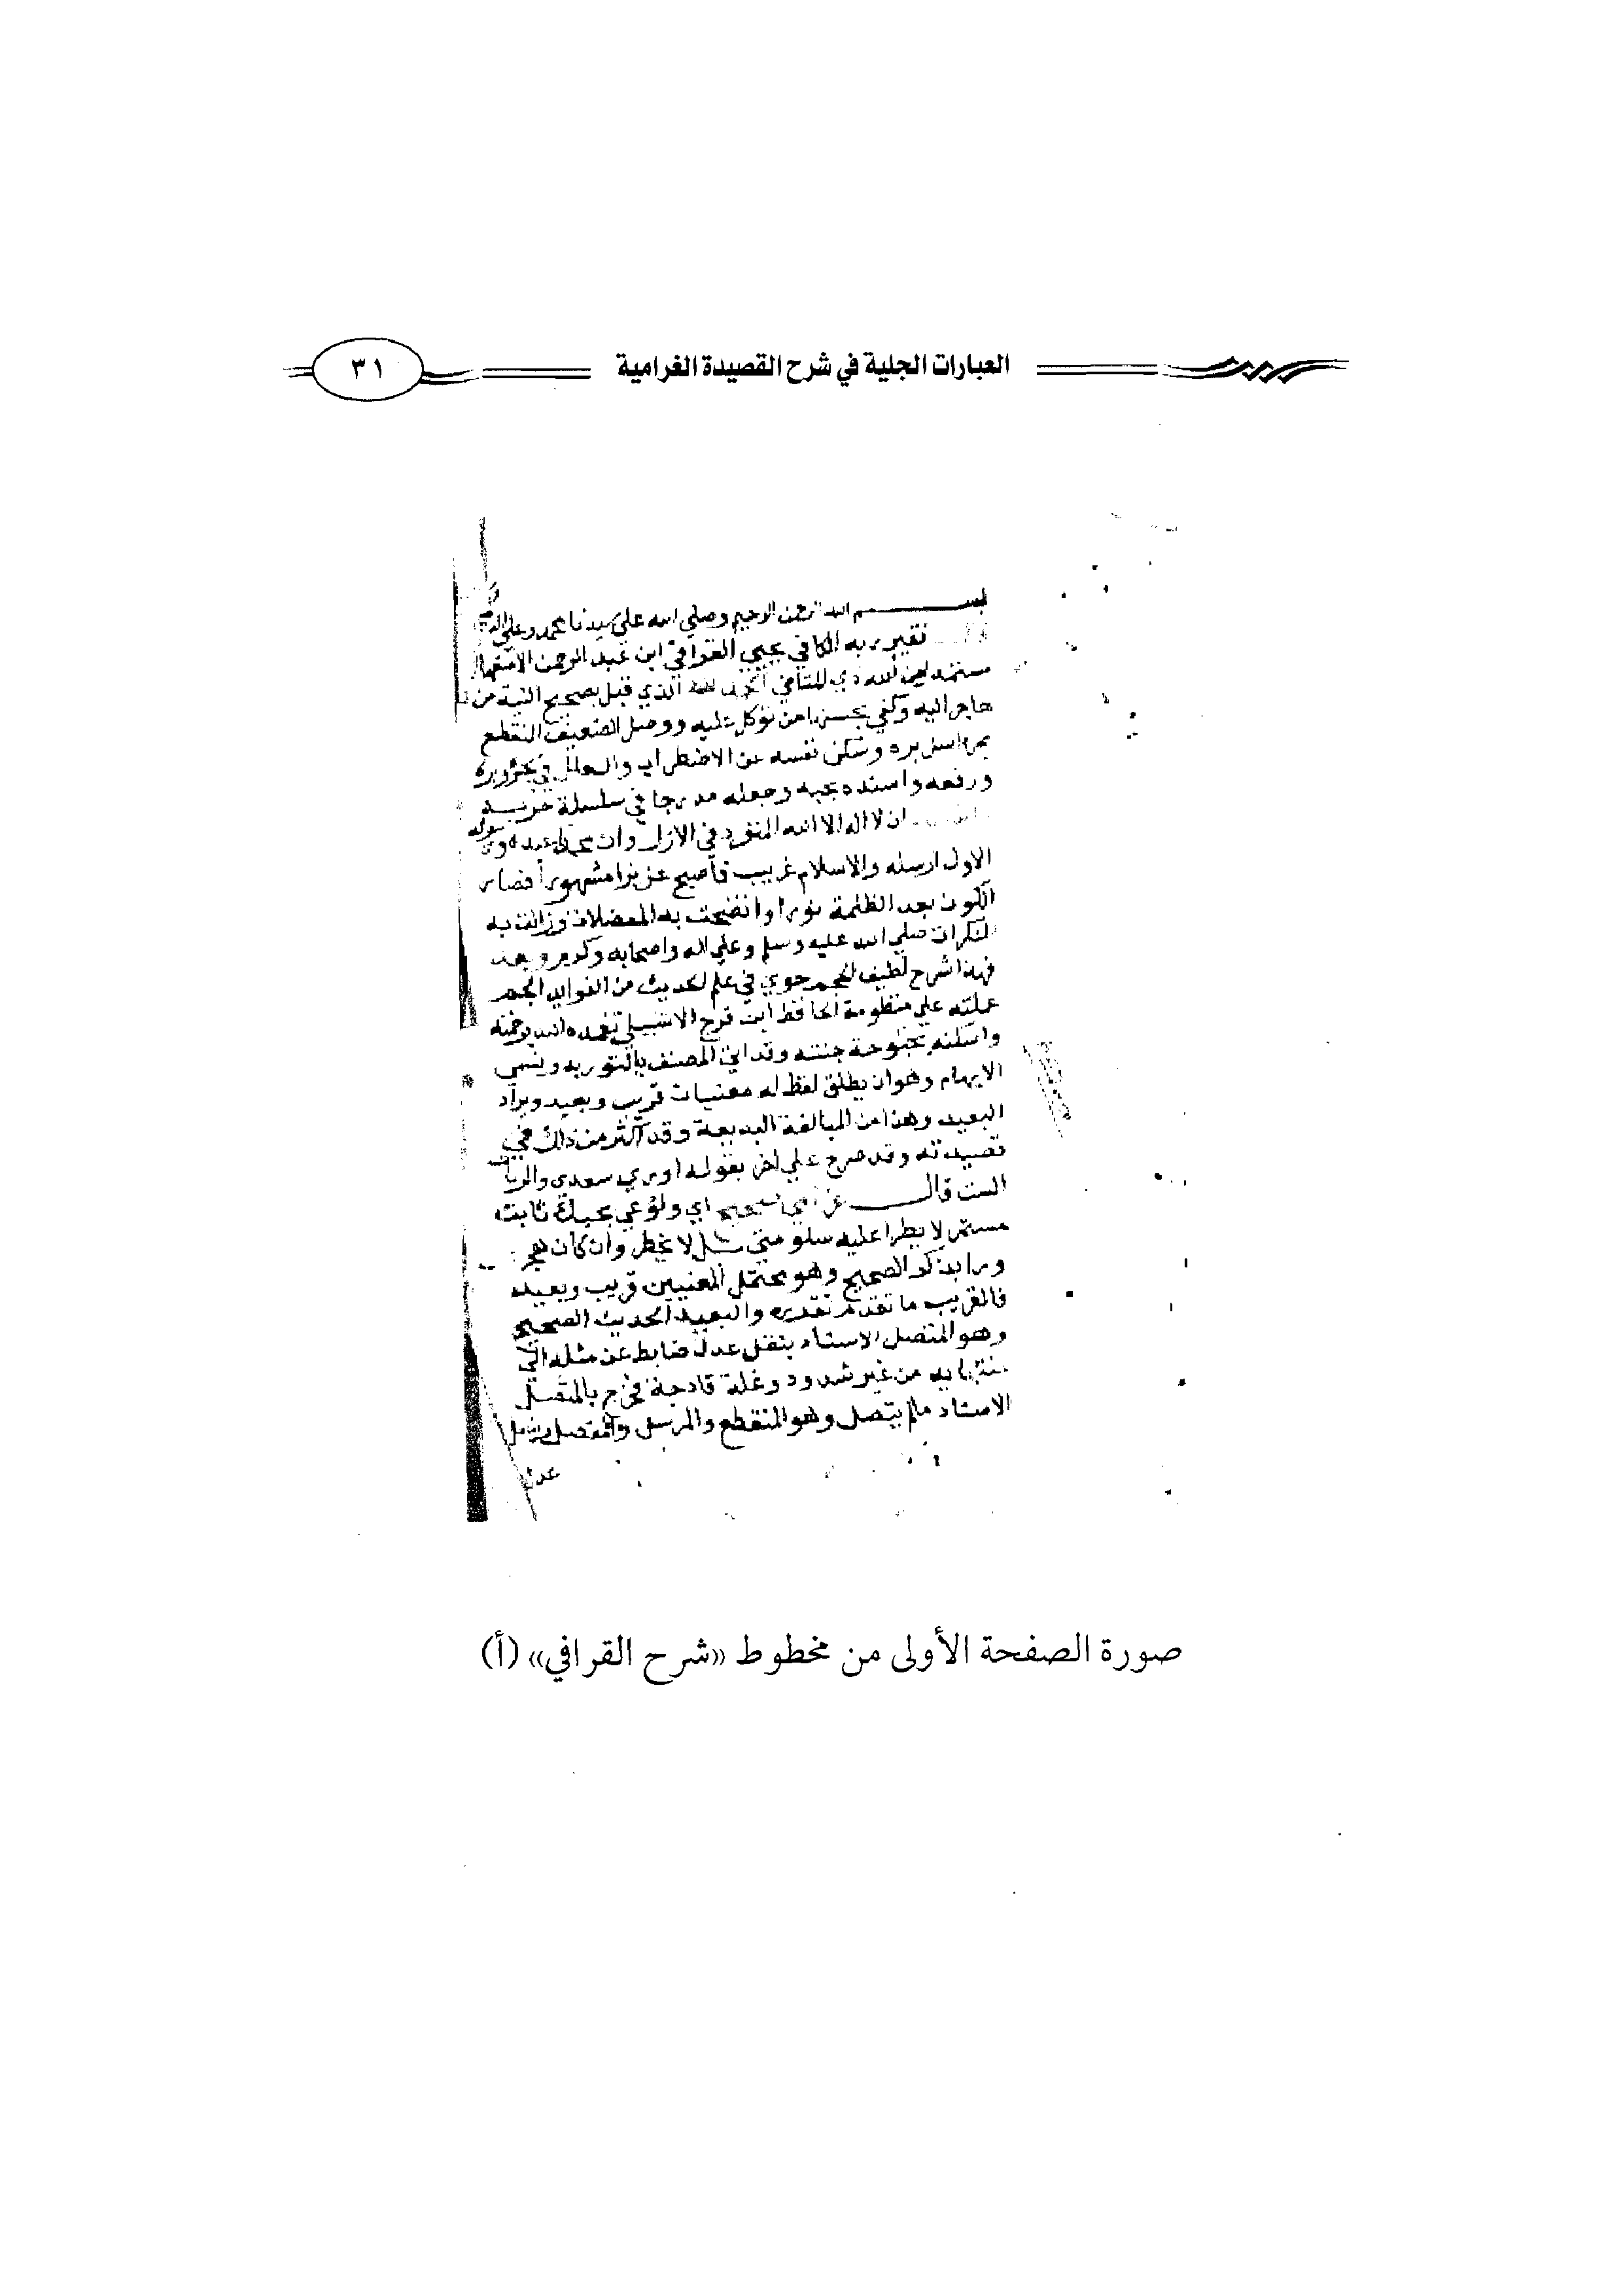 العبارات الجلية في شرح القصيدة الغرامية
٣١
بسم الله الرحمن الرحيم وصلي الله علي سيدنا محمد وعلي اله
فقير ربه الكافي يحيي القرافي ابن عبد الرحمن
الحمد لله الذي قبل بصحيح النية من
هاجر اليه وكفي من توكل عليه ووصل الضعيف المنقطع
بره وسكن نفسه من الاضطراب والعلل في
ورفعه واسنده بحبه وجعله مدرجا في سلسلة حزبه
ان لا اله الا الله المنفرد في الازل وان محمدا عبده ورسوله
الاول ارسله والاسلام غريب فاصبح عزيزا مشهورا فصار
الكون بعد الظلمة نورا واتضحت به المعضلات وزالت به
المنكرات صلي الله عليه وسلم وعلي اله واصحابه وكرم وبعد
فهذا شرح لطيف الحجم حوي في علم الحديث من الفوايد الجم
عملته علي منظومة الحافظ ابن فرح الاشبيلي تغمده الله برحمته
واسكنه بحبوحة جنته وقد اتي المصنف بالتوريه وتسمي
الايهام وهو ان يطلق لفظ له معنيان قريب وبعيد ويراد
البعيد وهذا من المبالغة البديعة وقد اكثر من ذلك في
قصيدته وقد صرح علي اخر بقوله اوري بسعدي والرباب
الست قال غرامي صحيح اي ولوعي بحبك ثابت
مستمر لا يطرا عليه سلو حتي لا يخطر وان كان هجر
وورا بذكر الصحيح وهو محتمل لمعنيين قريب وبعيد
فالقريب ما تقدم تقديره والبعيد الحديث الصحيح
وهو المتصل الاسناد بنقل عدل ضابط عن مثله الي
منتهاه من غير شذوذ وعلة قادحة فخرج بالمتصل
الاسناد مالم يتصل وهو المنقطع والمرسل والمعضل
عدل
صورة الصفحة الأولى من مخطوط «شرح القرافي» (أ)